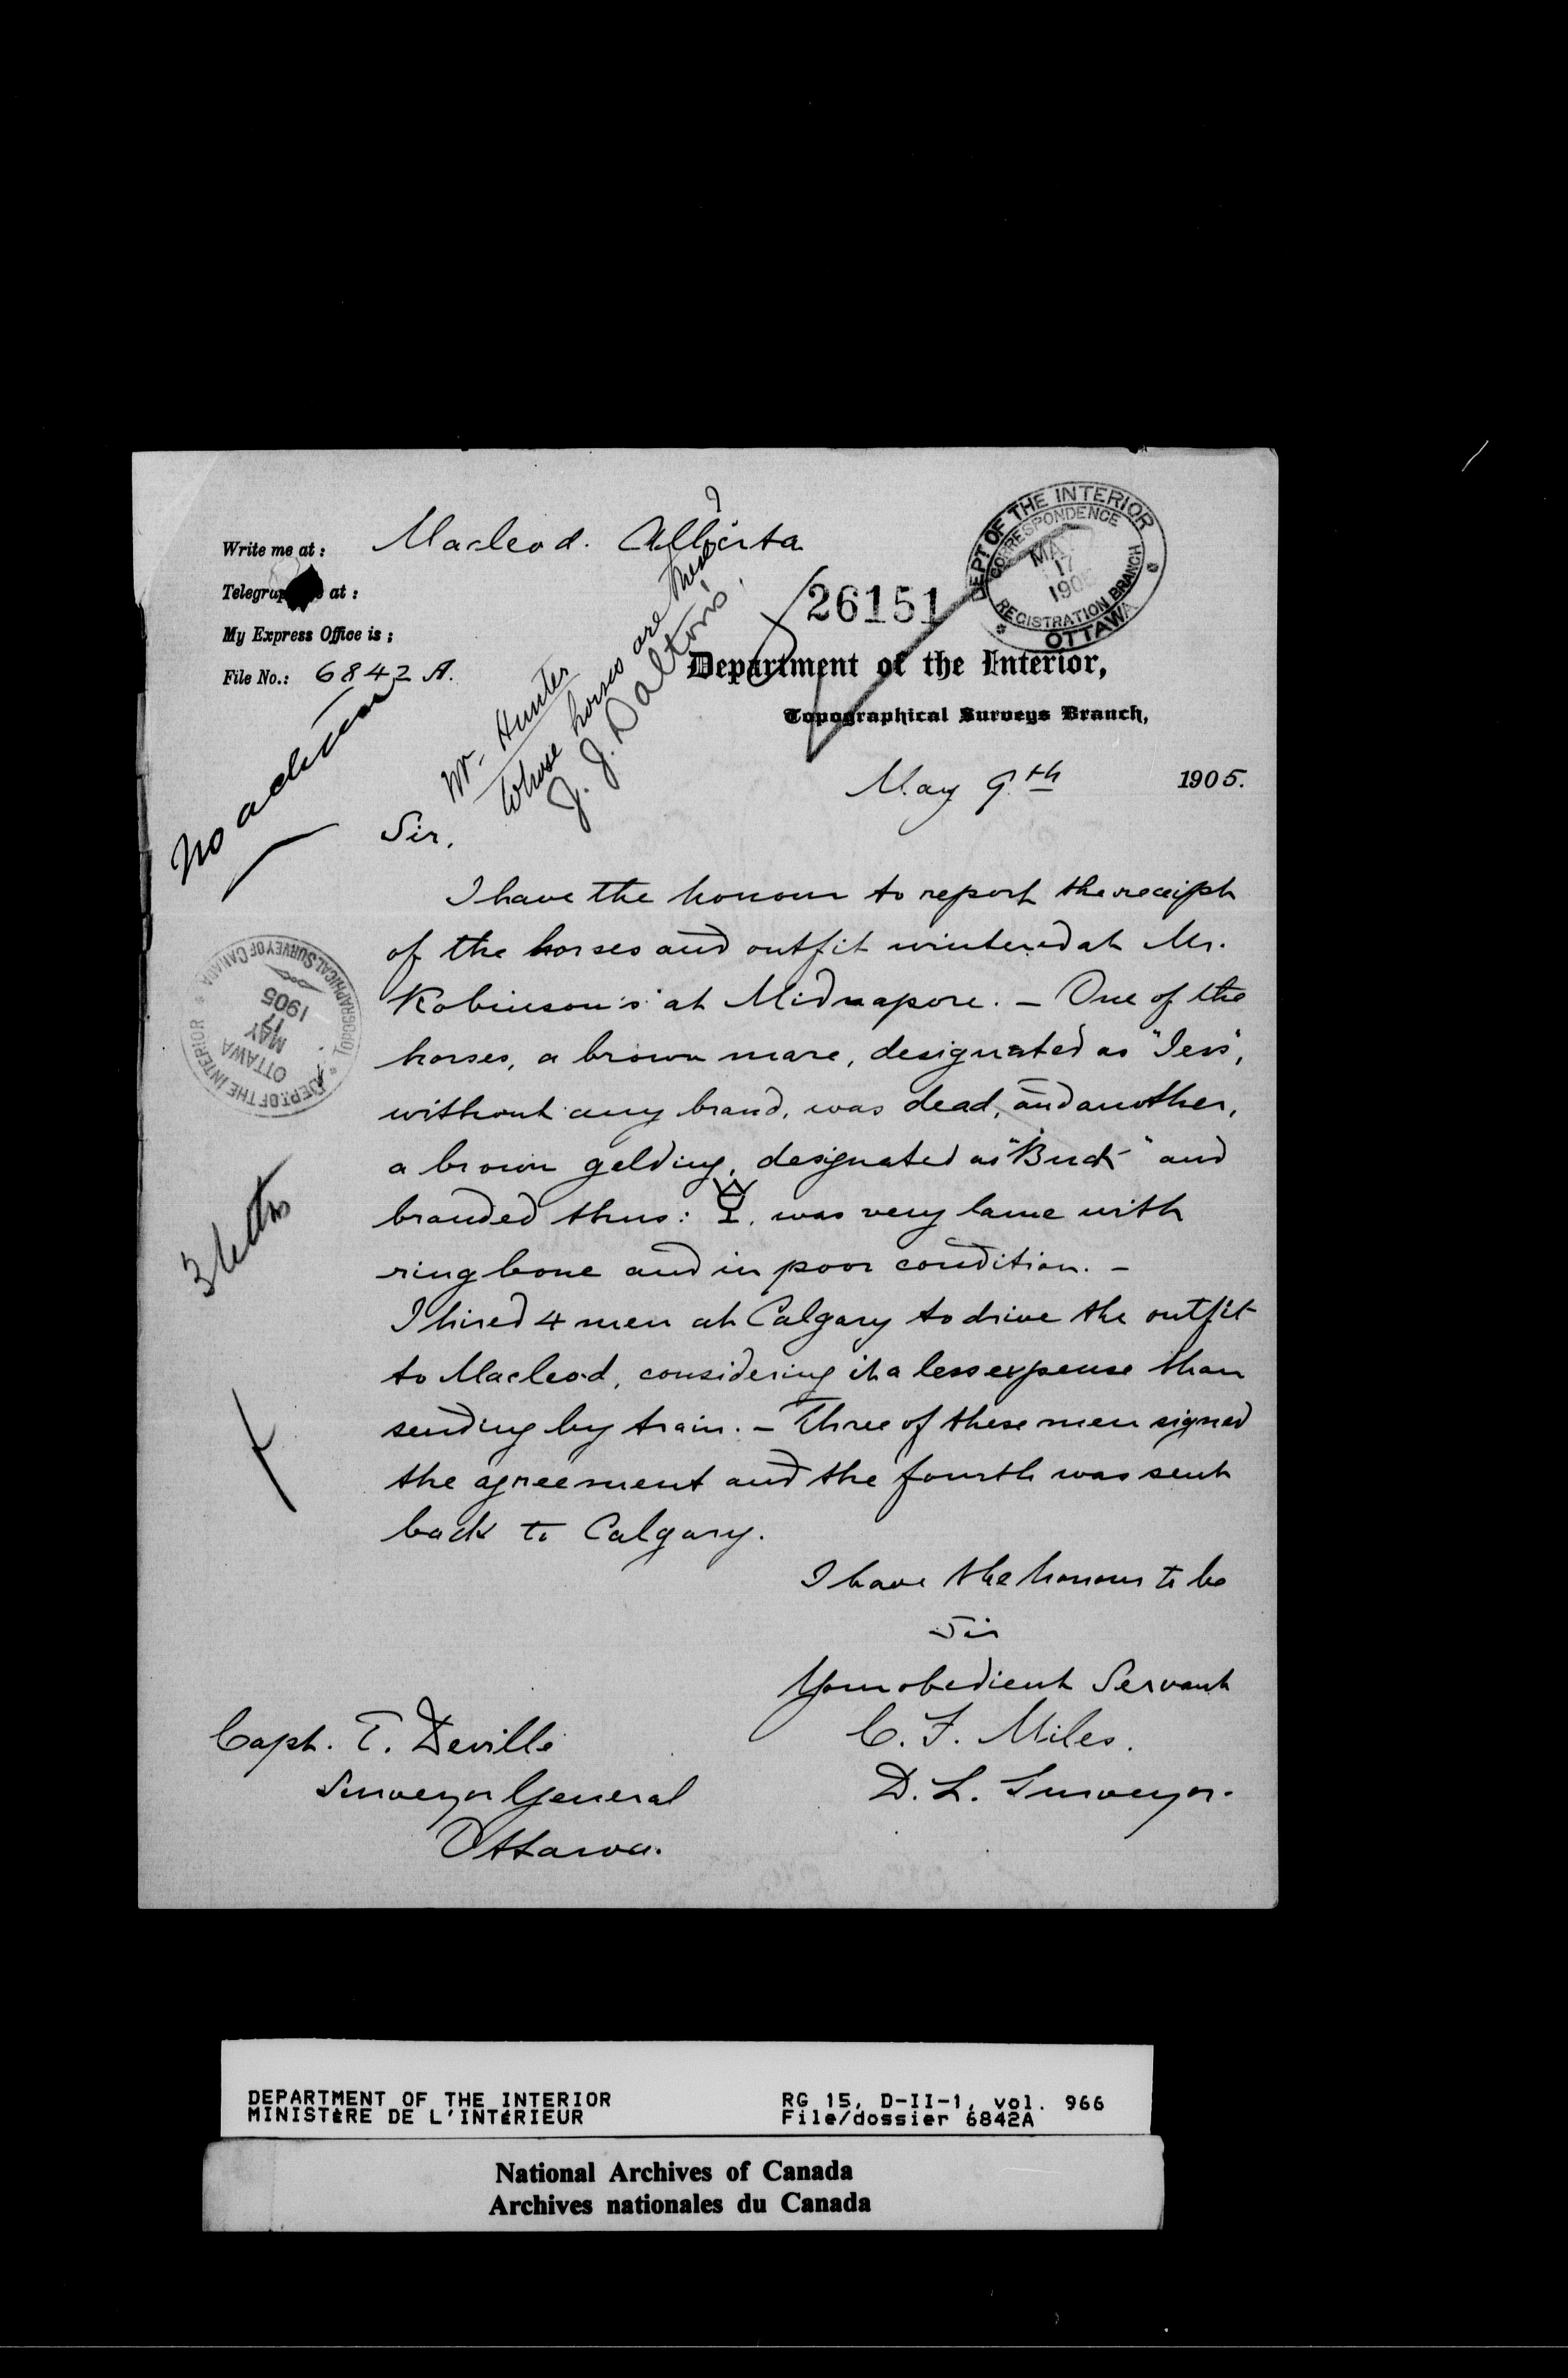 Write me at: Macleod. Alberta
Telegraph me at:
My Express Office is:
File No.: 6842 A.
26151
DEPT OF THE INTERIOR
CORRESPONDENCE
MAY
17
1905
REGISTRATION BRANCH
OTTAWA
Department of the Interior,
Topographical Surveys Branch,
May 9th 1905.
No action
Mr. Hunter
Whose horses are these?
J. J. Dalton's.
Sir,
I have the honour to report the receipt
of the horses and outfit wintered at Mr.
Robinson's at Midnapore. - One of the
horses, a brown mare, designated as "Jess",
without any brand, was dead, and another,
a brown gelding, designated as "Buck" and
branded thus: , was very lame with
ringbone and in poor condition. -
I hired 4 men at Calgary to drive the outfit
to Macleod, considering it a less expense than
sending by train. - Three of these men signed
the agreement and the fourth was sent
back to Calgary.
I have the honour to be
Sir
Your obedient Servant
C. F. Miles.
D. L. Surveyor.
Capt. E. Deville
Surveyor General
Ottawa.
TOPOGRAPHICAL SURVEY OF CANADA
DEPT. OF THE INTERIOR
OTTAWA
MAY
17
1905
3 letters
DEPARTMENT OF THE INTERIOR
MINISTÈRE DE L'INTÉRIEUR
RG 15, D-II-1, vol. 966
File/dossier 6842A
National Archives of Canada
Archives nationales du Canada